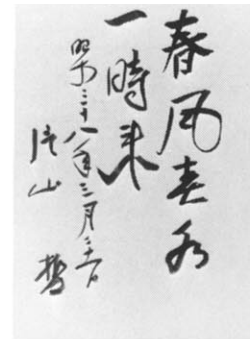 春風春水
一時来
昭和三十八年三月三十一日
片山哲